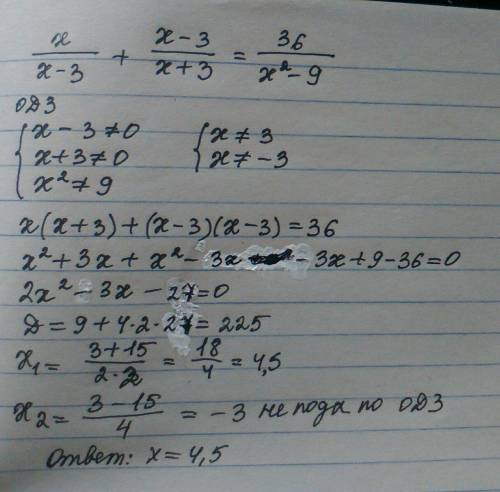 x/(x-3) + (x-3)/(x+3) = 36/(x²-9)
ОДЗ
{x-3≠0 {x≠3
{x+3≠0 {x≠-3
{x²≠9
x(x+3)+(x-3)(x-3)=36
x²+3x+x²-3x-3x+9-36=0
2x²-3x-27=0
D=9+4·2·27=225
x₁= (3+15)/(2·2) = 18/4 = 4,5
x₂= (3-15)/4 = -3 не подх по ОДЗ
Ответ: x=4,5